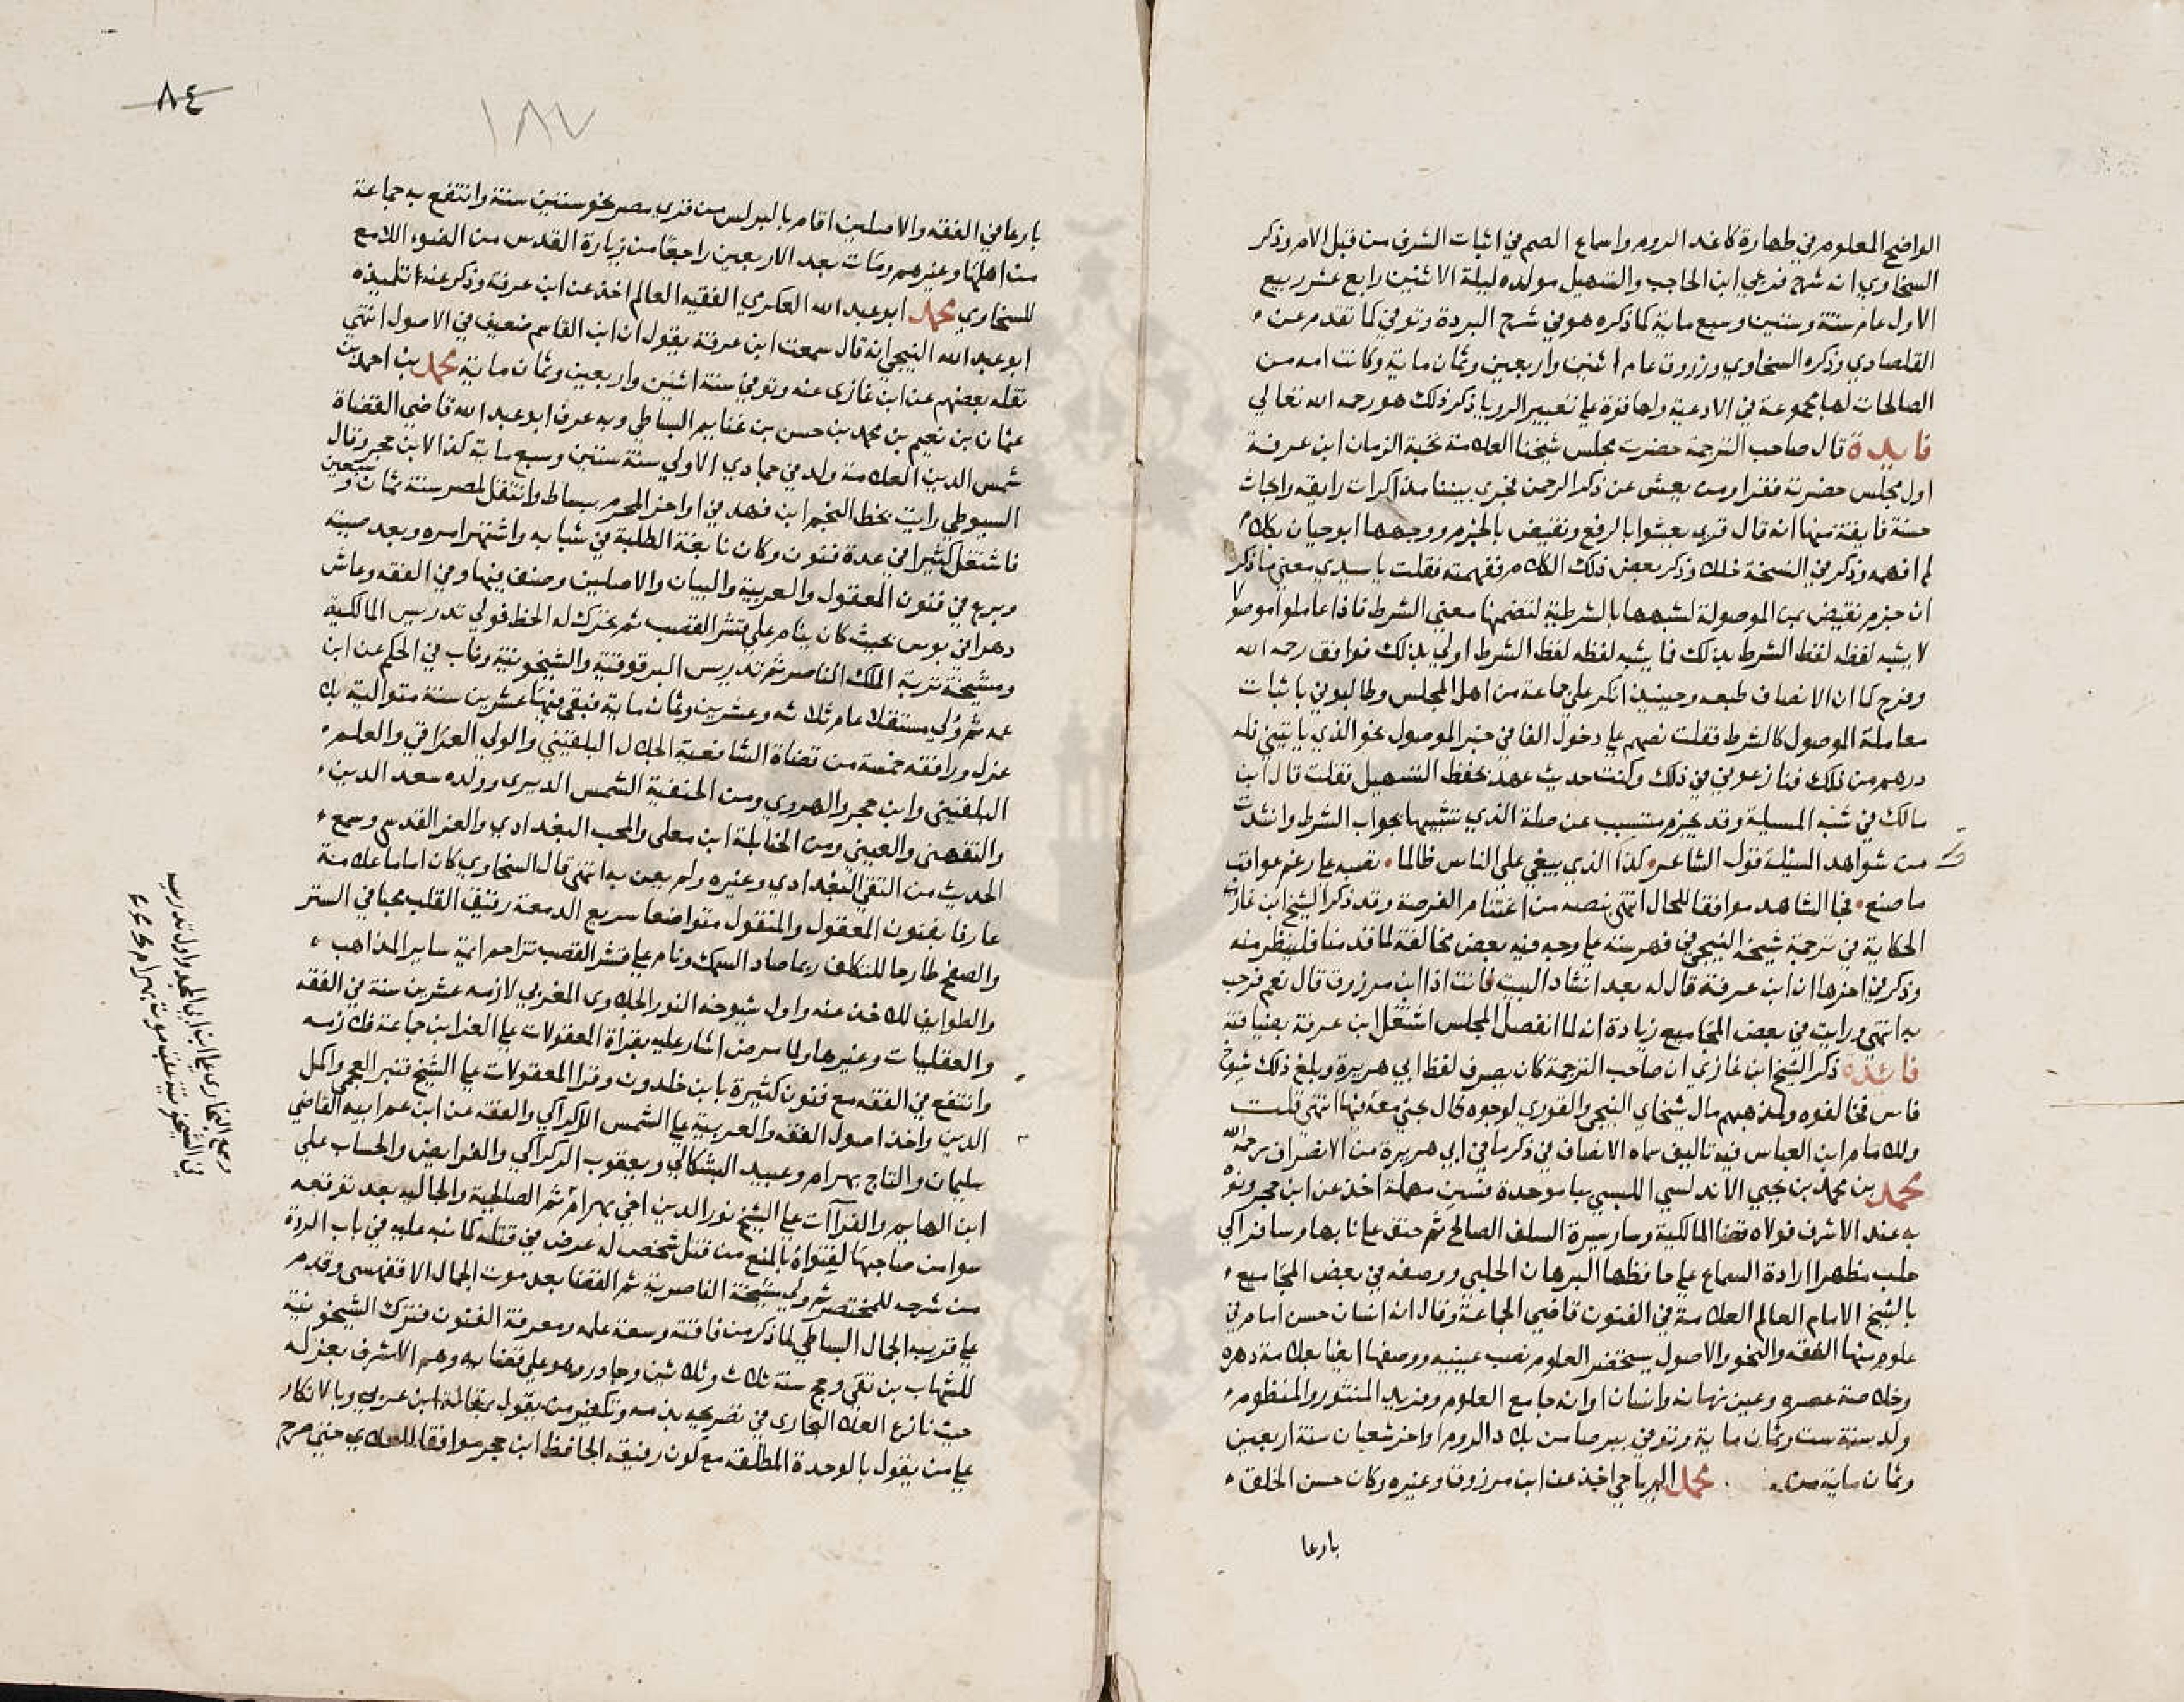 الواضح المعلوم في طهارة كاغد الروم واسماع الصم في اثبات الشرف من قبل الام وذكر
السخاوي انه شرح فرعي ابن الحاجب والتسهيل مولده ليلة الاثنين رابع عشر ربيع
الاول عام ستة وستين وسبع ماية كما ذكره هو في شرح البردة وتوفي كما تقدم عن
القلصادي وذكره السخاوي وزروق عام اثنين واربعين وثمان ماية وكانت امه من
الصالحات لها مجموعة في الادعية ولها قوة على تعبير الرويا ذكر ذلك هو رحمه الله تعالي
فايدة قال صاحب الترجمة حضرت مجلس شيخنا العلامة نخبة الزمان ابن عرفة
اول مجلس حضرته فقرا ومن يعش عن ذكر الرحمن فجري بيننا مذاكرات رايقة وابحاث
حسنة فايقة منها انه قال قري يعشوا بالرفع ونقيض بالجزم ووجهها ابو حيان بكلام
لم افهمه وذكر في النسخة خللا وذكر بعض ذلك الكلام ففهمته فقلت يا سيدي معني ما ذكر
ان جزم نقيض بمن الموصولة لشبهها بالشرطية لتضمنها معني الشرط فاذا عاملوا موصولا
لا يشبه لفظه لفظ الشرط بذلك فما يشبه لفظه لفظ الشرط اولي بذلك فوافق رحمه الله
وفرح كما ان الانصاف طبعه وحينيذ انكر علي جماعة من اهل المجلس وطالبوني باثبات
معاملة الموصول كالشرط فقلت نصهم على دخول الفا في خبر الموصول نحو الذي ياتيني فله
درهم من ذلك فنازعوني في ذلك وكنت حديث عهد بحفظ التسهيل فقلت قال ابن
مالك في شبه المسيلة وقد يجزم متسبب عن صلة الذي تشبيها بجواب الشرط وانشدت
من شواهد المسئلة قول الشاعر كذا الذي يبغي علي الناس ظالما تصبه على رغم عواقب
ما صنع فجا الشاهد موافقا للحال انتهي نصه من اغتنام الفرصة وقد ذكر الشيخ ابن غازي
الحكاية في ترجمة شيخه النيجي في فهرسته على وجه فيه بعض مخالفة لما قدمنا فلينظر منه
وذكر في اخرها ان ابن عرفة قال له بعد انشاد البيت فانت اذا ابن مرزوق قال نعم فرحب
به انتهي ورايت في بعض المجاميع زيادة انه لما انفصل المجلس اشتغل ابن عرفة بضيافته
فائدة ذكر الشيخ ابن غازي ان صاحب الترجمة كان يصرف لفظ ابي هريرة وبلغ ذلك شيوخ
فاس فخالفوه ولمذهبهم مال شيخاي النيجي والقوري لوجوه طال بحثي معه فيها انتهي قلت
وللامام ابن العباس فيه تاليف سماه الانصاف في ذكر ما في ابي هريرة من الانصراف رحمه الله
محمد بن محمد بن يحيي الاندلسي اللبسي بباء موحدة فسين مهملة اخذ عن ابن حجر ونوه
به عند الاشرف فولاه قضا المالكية وسار سيرة السلف الصالح ثم حنق على نايبها وسافر الي
حلب مظهرا ارادة السماع على حافظها البرهان الحلبي ووصفه في بعض المجاميع
بالشيخ الامام العالم العلامة في الفنون قاضي الجماعة وقال انه انسان حسن امام في
علوم منها الفقه والنحو والاصول يستحضر العلوم نصب عينيه ووصفها ايضا بعلامة دهره
وخلاصة عصره وعين زمانه وانسان اوانه جامع العلوم وفريد المنثور والمنظوم
ولد سنة ست وثمان ماية وتوفي ببرصا من بلاد الروم اواخر شعبان سنة اربعين
وثمان ماية محمد الرياحي اخذ عن ابن مرزوق وغيره وكان حسن الخلق
بارعا
٨٤
١٨٧
بارعا في الفقه والاصلين اقام بالبرلس من قري مصر نحو ستين سنة وانتفع به جماعة
من اهلها وغيرهم ومات بعد الاربعين راجعا من زيارة القدس من الضوء اللامع
للسخاوي محمد ابو عبد الله العكرمي الفقيه العالم اخذ عن ابن عرفة وذكر عنه تلميذه
ابو عبد الله النيجي انه قال سمعت ابن عرفة يقول ان ابن القاسم ضعيف في الاصول انتهي
نقله بعضهم عن ابن غازي عنه وتوفي سنة اثنين واربعين وثمان ماية محمد بن احمد بن
عثمان بن نعيم بن محمد بن حسن بن غنايم البساطي وبه عرف ابو عبد الله قاضي القضاة
شمس الدين العلامة ولد في جمادي الاولي سنة ستين وسبع ماية كذا لابن حجر وقال
السيوطي رايت بخط النجم ابن فهد في اواخر المحرم ببساط وانتقل لمصر سنة ثمان وسبعين
فاشتغل كثيرا في عدة فنون وكان نابغة الطلبة في شبابه واشتهر امره وبعد صيته
وبرع في فنون المعقول والعربية والبيان والاصلين وصنف فيها وفي الفقه وعاش
دهرا في بوس بحيث كان ينام علي قشر القصب ثم تحرك له الحظ فولي تدريس المالكية
ومشيخة تربة الملك الناصر ثم تدريس البرقوقية والشيخونية وناب في الحكم عن ابن
عمه ثم ولي مستقلا عام ثلاثة وعشرين وثمان ماية فبقي فيها عشرين سنة متوالية بلا
عزل ورافقه خمسة من قضاة الشافعية الجلال البلقيني والولي العراقي والعلم
البلقيني وابن حجر والهروي ومن الحنفية الشمس الديري وولده سعد الدين
والتفهني والعيني ومن الحنابلة ابن مغلي والمحب البغدادي والعز القدسي وسمع
الحديث من التقي البغدادي وغيره ولم يعن به انتهي قال السخاوي كان اماما علامة
عارفا بفنون المعقول والمنقول متواضعا سريع الدمعة رقيق القلب محبا في الستر
والصفح طارحا للتكلف ربما صاد السمك ونام على قشر القصب تزاحم ايمة ساير المذاهب
والطوايف للاخذ عنه واول شيوخه النور الجلاوي المغربي لازمه عشرين سنة في الفقه
والعقليات وغيرها ولما مرض اشار عليه بقراة المعقولات على العز ابن جماعة فلازمه
وانتفع في الفقه مع فنون كثيرة بابن خلدون وقرا المعقولات على الشيخ قنبر العجمي واكمل
الدين واخذ اصول الفقه والعربية على الشمس الركراكي والفقه عن ابن عم ابيه القاضي
سليمان والتاج بهرام وعبيد البشكالي ويعقوب الركراكي والفرايض والحساب علي
ابن الهايم والقراآت على الشيخ نور الدين اخي بهرام ثم الصالحية والجمالية بعد توقفه
سوا من صاحبها ليفتواه بالمنع من قتل شخص له غرض في قتله كما نبه عليه في باب الردة
من شرحه للمختصر ثم ولي مشيخة الناصرية ثم القضا بعد موت الجمال الاقفهسي وقدم
على قريبه الجمال البساطي لما ذكر من فاقته وسعة علمه ومعرفة الفنون فترك الشيخونية
للشهاب بن تقي وحج سنة ثلاث وثلاثين وجاور وهو علي قضايه وهم الاشرف بعزله
حيث نازع العلا البخاري في تصريحه بذمه وتكفير من يقول بمقالة ابن عربي وبالانكار
على من يقول بالوحدة المطلقة مع كون رفيقه الحافظ ابن حجر موافقا للعلاي حتي صرح